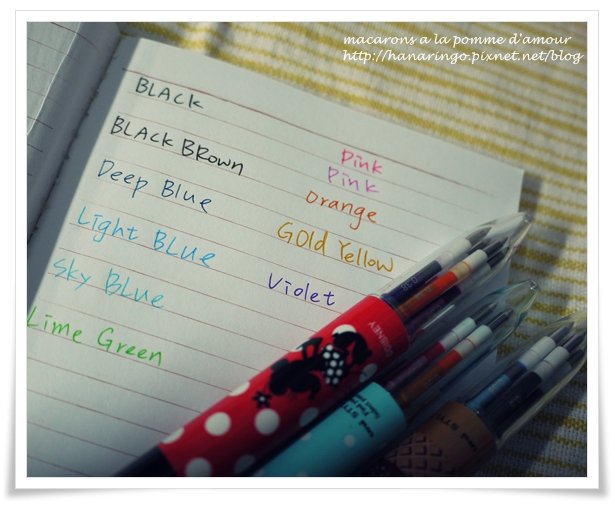 macarons a la pomme d'amour
http://hanaringo.pixnet.net/blog
BLACK
BLACK BROWN
Deep Blue
Light BLUE
Sky BLUE
Lime Green
Pink
Pink
Orange
GOld Yellow
Violet
DISNEY
uni STYLE
uni STYLE